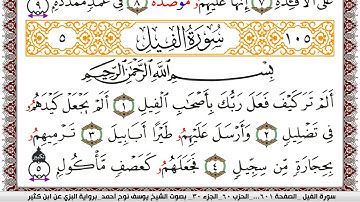 عَلَى ٱلْأَفْـِٔدَةِ ٧ إِنَّهَا عَلَيْهِمُۥ مُوصَدَةٌ ٨ فِى عَمَدٍ مُمَدَّدَةٍ ٩
١٠٥ سُورَةُ ٱلْفِيلِ ٥
بِسْمِ ٱللَّهِ ٱلرَّحْمَٰنِ ٱلرَّحِيمِ
أَلَمْ تَرَ كَيْفَ فَعَلَ رَبُّكَ بِأَصْحَٰبِ ٱلْفِيلِ ١ أَلَمْ يَجْعَلْ كَيْدَهُمُۥ
فِى تَضْلِيلٍ ٢ وَأَرْسَلَ عَلَيْهِمُۥ طَيْرًا أَبَابِيلَ ٣ تَرْمِيهِمُۥ
بِحِجَارَةٍ مِّن سِجِّيلٍ ٤ فَجَعَلَهُمُۥ كَعَصْفٍ مَّأْكُولٍ ٥
سورة الفيل .. الصفحة ٦٠١ ... الحزب ٦٠ .الجزء ٣٠ . بصوت الشيخ يوسف نوح أحمد .برواية البزي عن ابن كثير